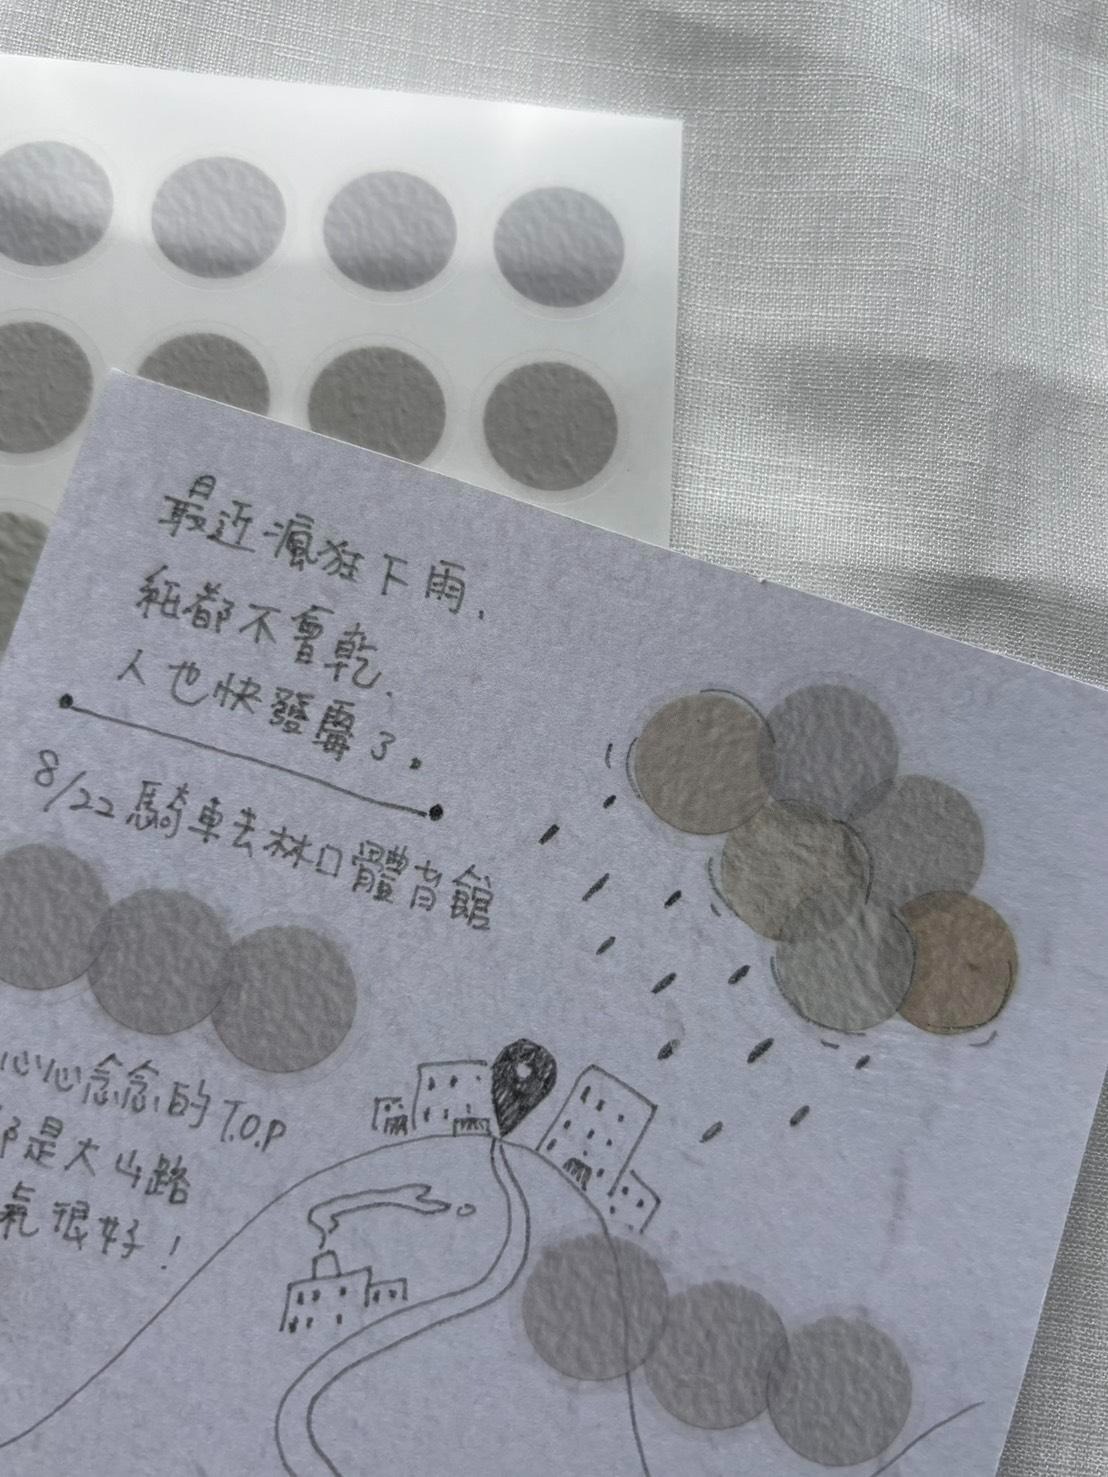 最近瘋狂下雨、
紙都不會乾、
人也快發霉了。
8/22 騎車去林口體育館
心心念念的 T.O.P
都是大山路
氣很好！